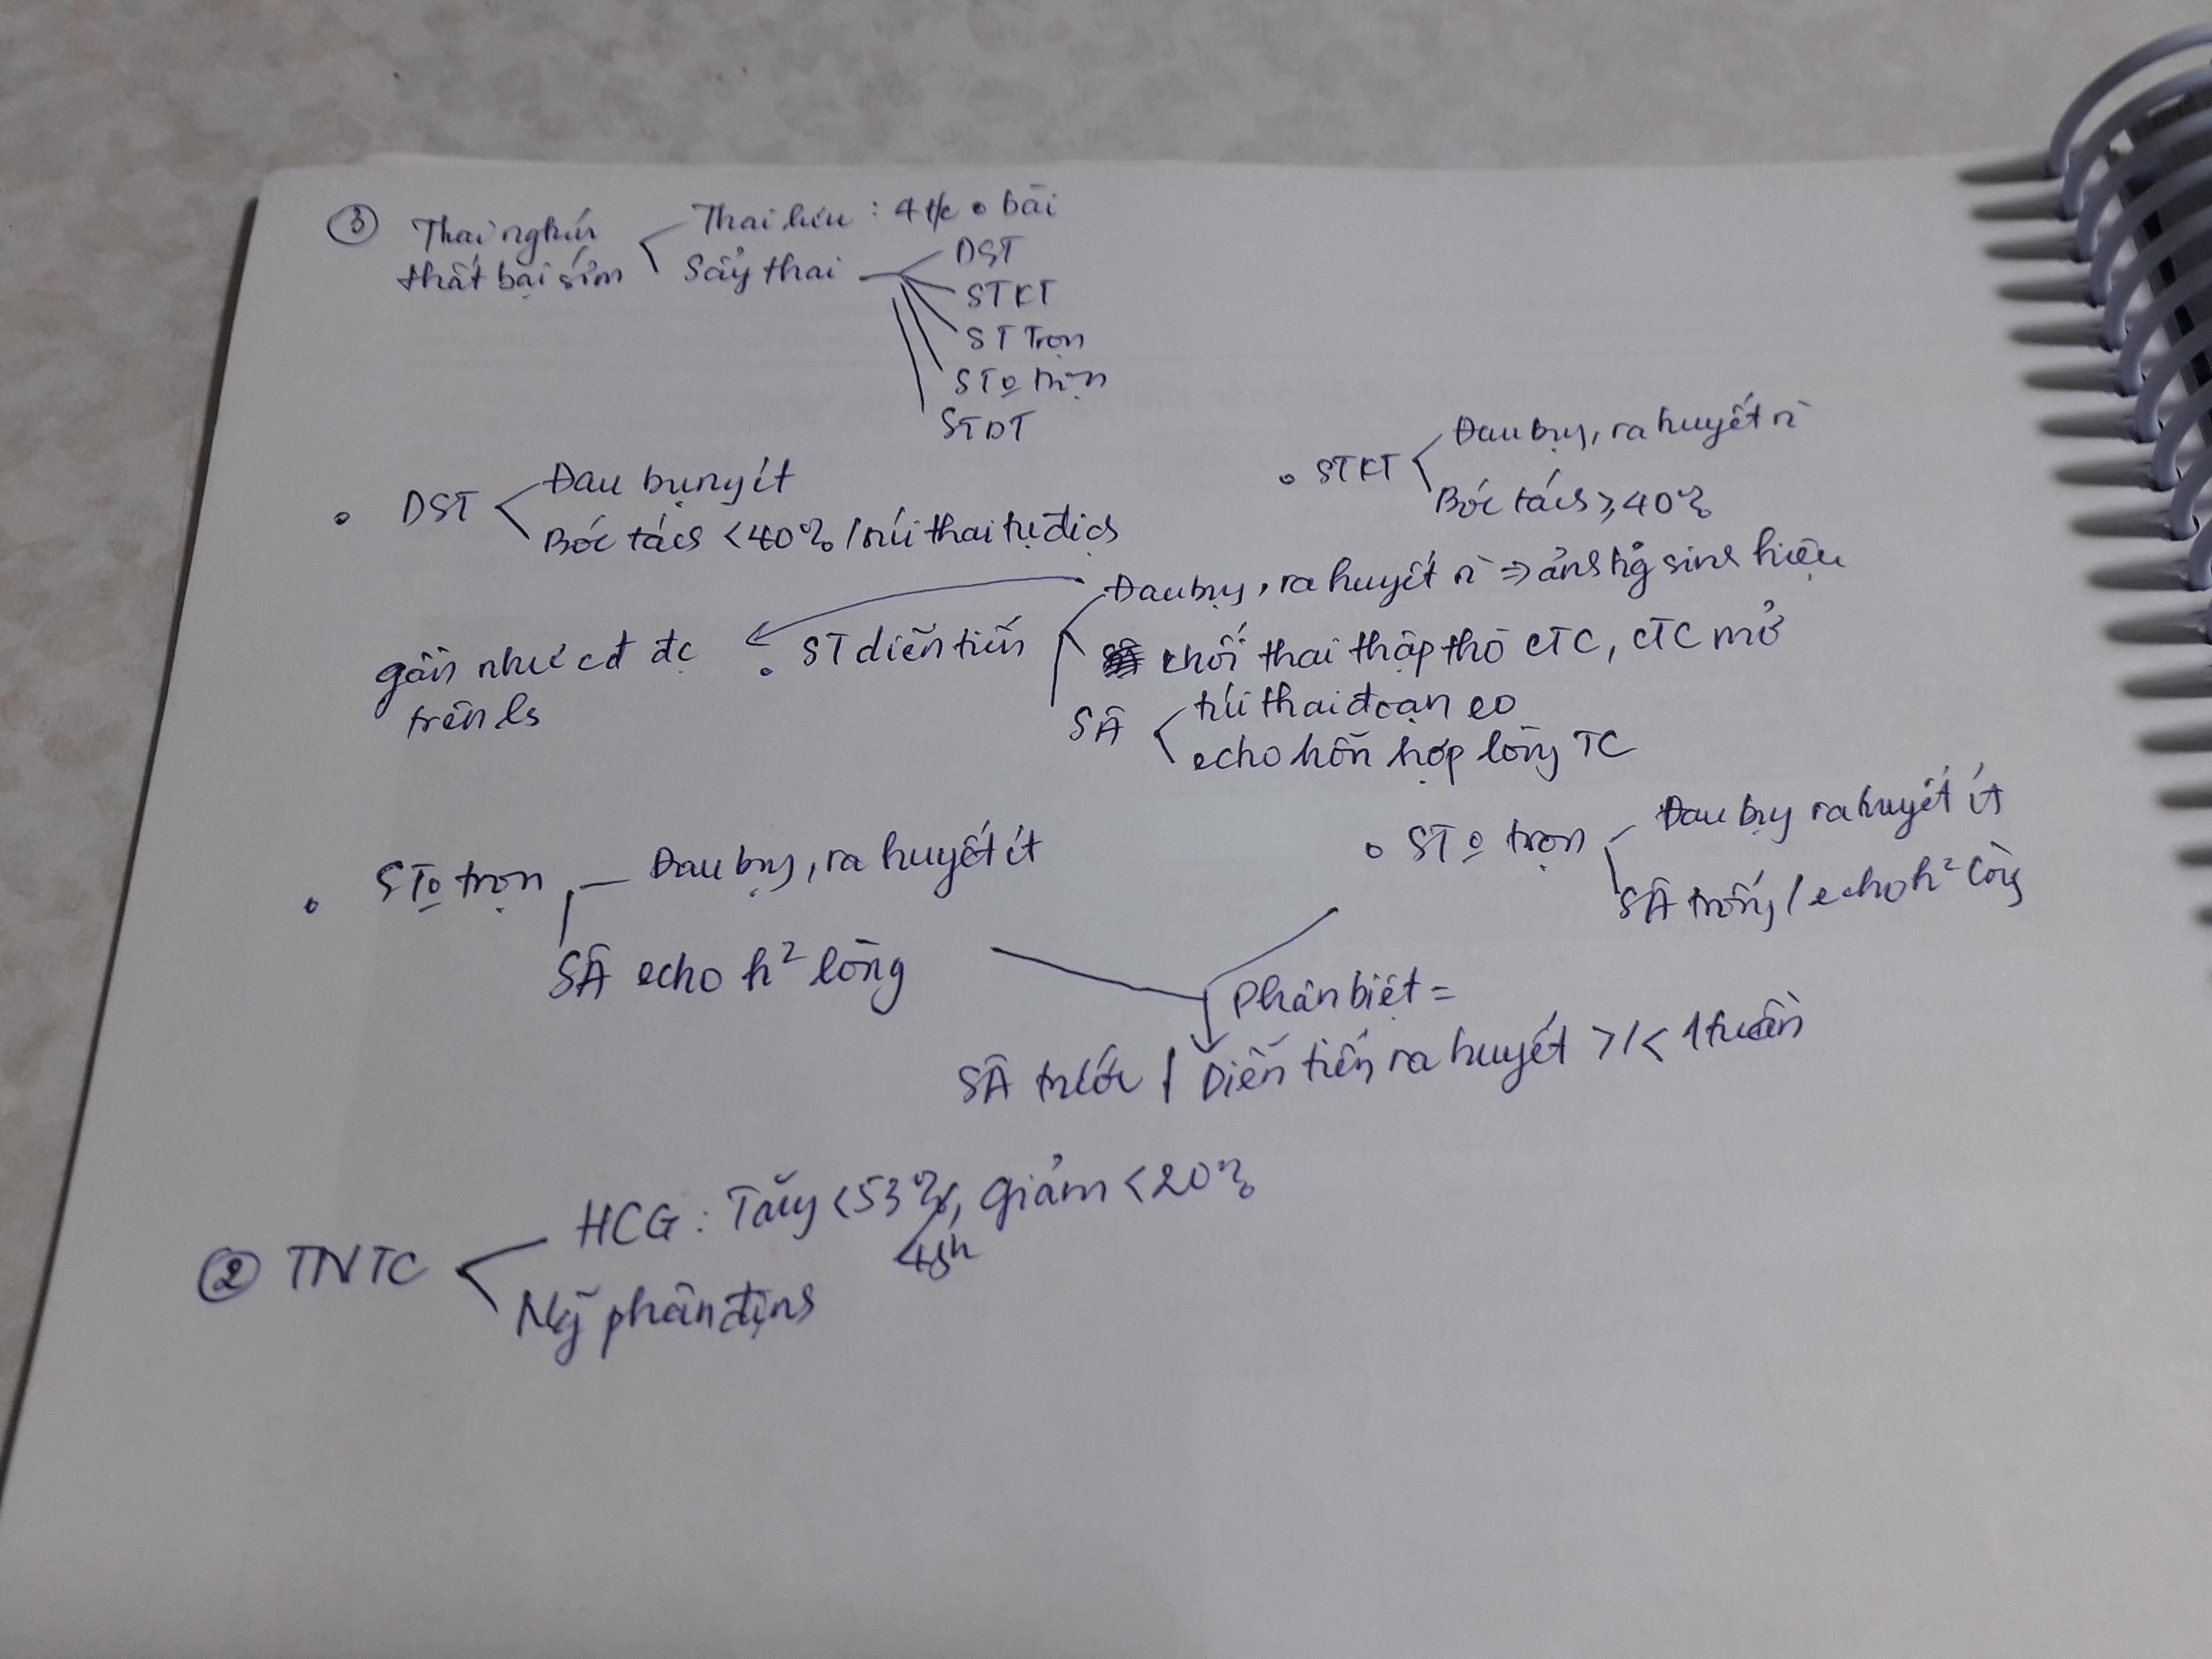 ③ Thai nghén
thất bại sớm
Thai lưu : 4 t/c • bài
Sẩy thai
DST
STKT
ST Trọn
STo trọn
STDT
• DST
Đau bụng ít
Bóc tách <40% / túi thai tụ dịch
• STKT
Đau bụng, ra huyết n`
Bóc tách ≥40%
gần như cđ đc
trên ls
• ST diễn tiến
Đau bụng, ra huyết n` => ảnh hg sinh hiệu
khối thai thập thò CTC, CTC mở
SÂ
túi thai đoạn eo
echo hỗn hợp lòng TC
• STo trọn
Đau bụng, ra huyết ít
SÂ echo h² lòng
• STo trọn
Đau bụng ra huyết ít
SÂ trống / echo h² lòng
Phân biệt =
SÂ trước / Diễn tiến ra huyết >/< 1 tuần
② TNTC
HCG : Tăng <53%, giảm <20%
48h
phân định